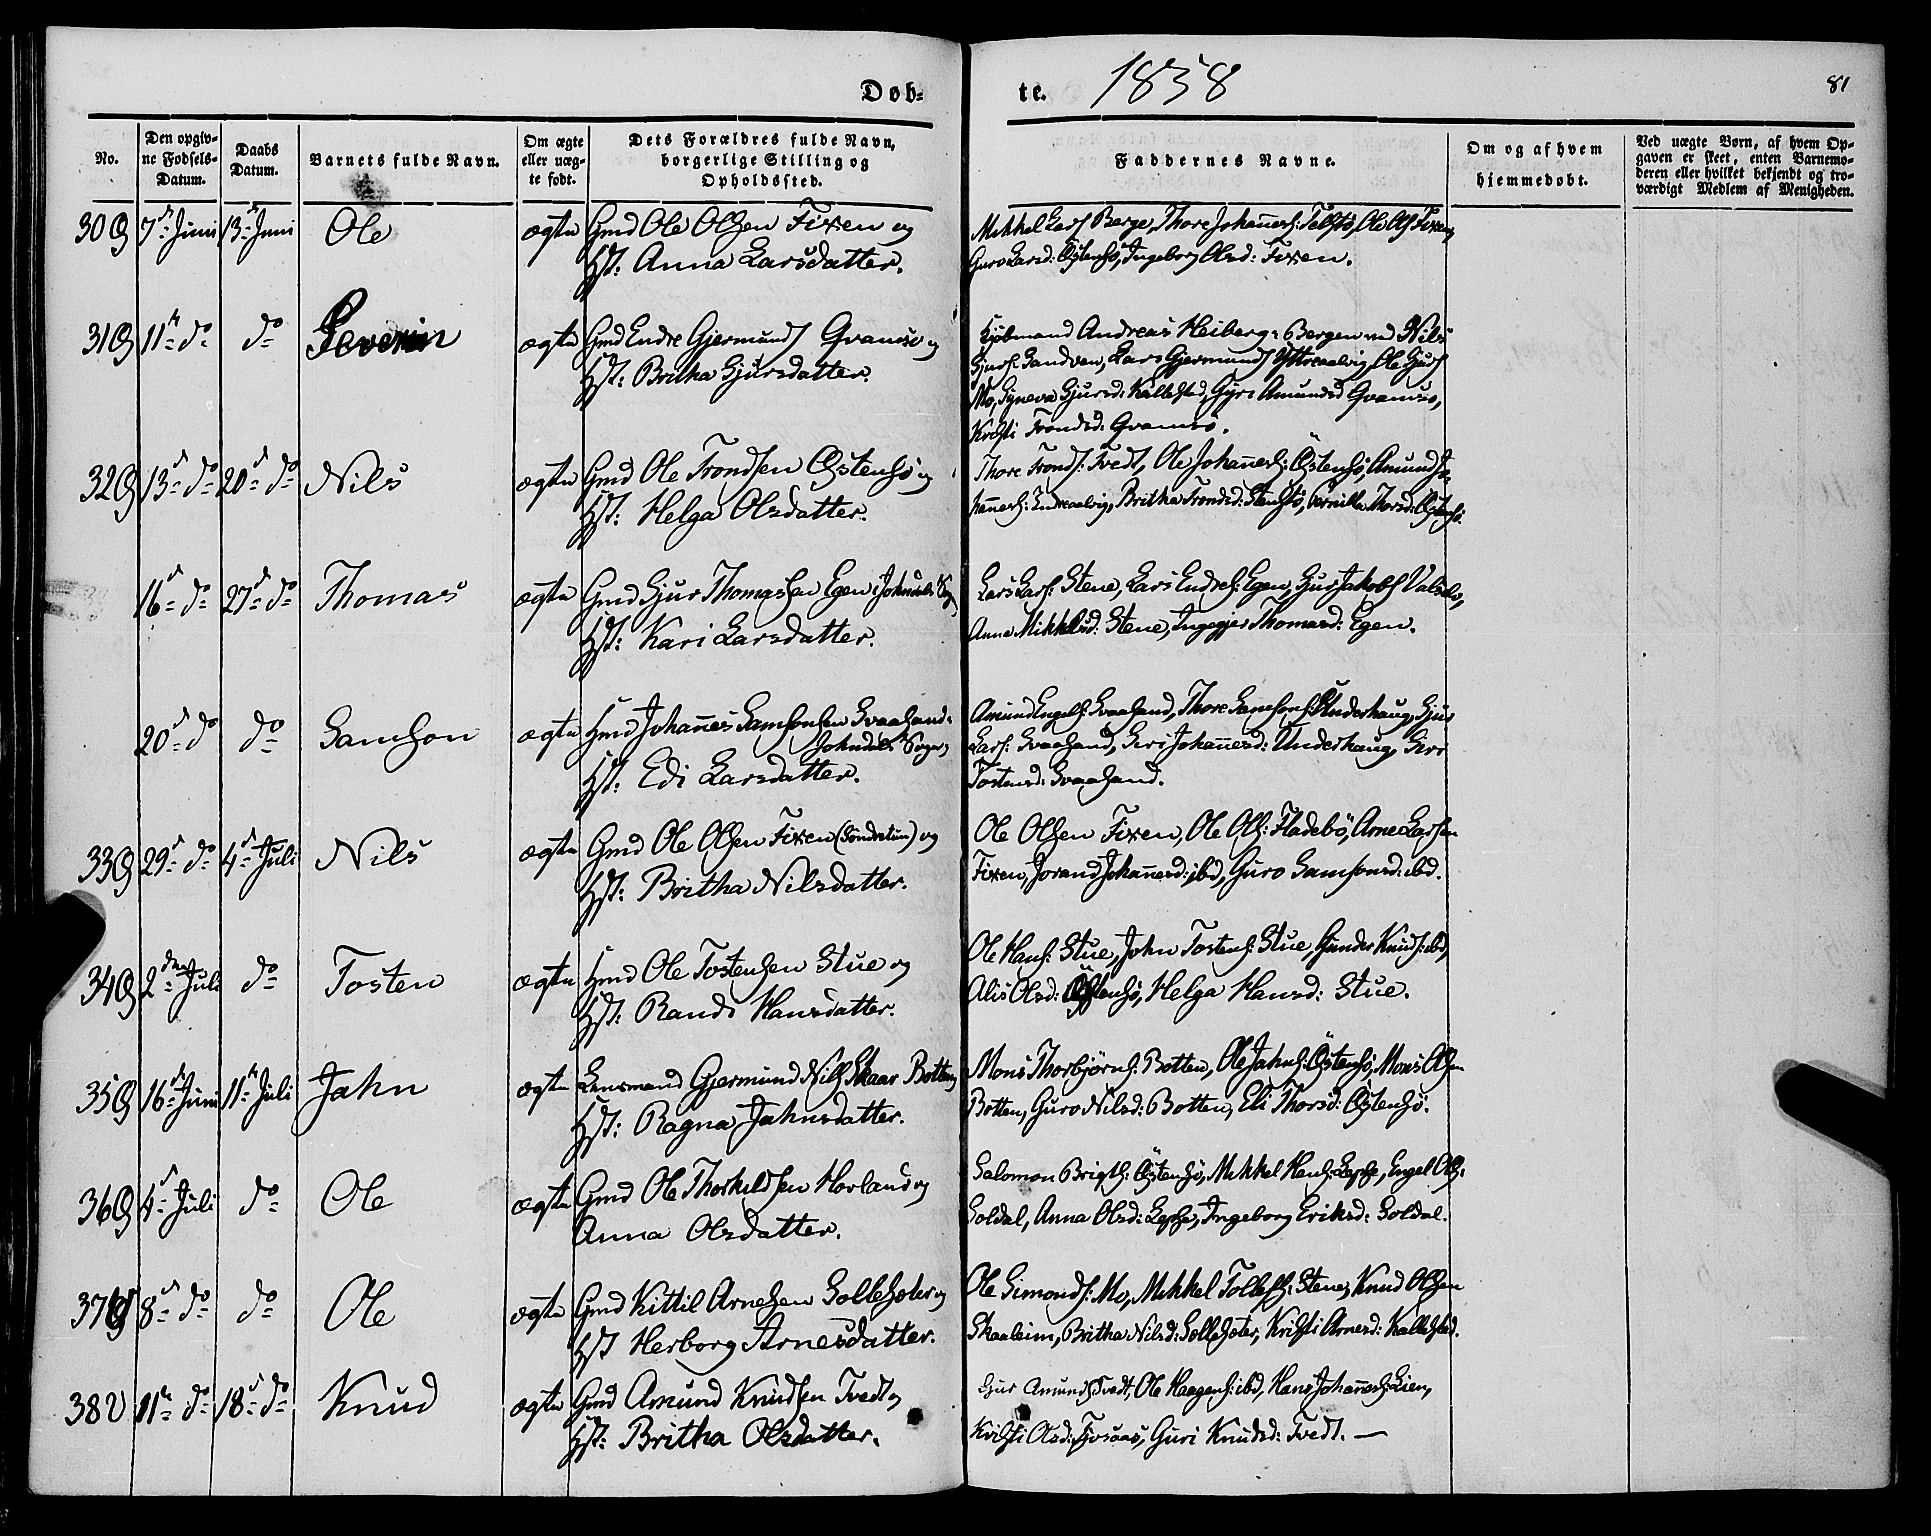 Døb-
te.
1858
81
No.
Den opgiv-
ne Fødsels-
Datum.
Daabs
Datum.
Barnets fulde Navn.
Om ægte
eller uæg-
te født.
Dets Forældres fulde Navn,
borgerlige Stilling og
Opholdssted.
Faddernes Navne.
Om og af hvem
hjemmedøbt.
Ved uægte Børn, af hvem Op-
gaven er skeet, enten Barnemo-
deren eller hvilket bekjendt og tro-
værdigt Medlem af Menigheden.
30 7de Juni 13de Juni Ole ægte Gmd Ole Olsen Fixen og
Hst: Anna Larsdatter.
Mikkel Lars Berge, Thore Johannes: Ole Ols Fixen,
Guro Larsd: Østensø, Ingeborg Olsd: Fixen.
31 11te do do Severin ægte Gmd Endre Gjermunds Qvamsø og
Hst: Britha Sjursdatter.
Kjøbmand Andreas Heiberg: Bergen Nils
Sjurs: Sandven, Lars Gjermunds Ytreaalvig, Ole Sjurs
Mo, Syneva Sjursd: Kallestad, Gyri Amundsd Qvamsø,
Kristi Trondsd: Qvamsø.
32 13de do 20de do Nils ægte Gmd Ole Trondsen Østensø og
Hst: Helga Olsdatter.
Thore Tronds: Tvedt, Ole Johannes: Østensø, Amund Jo-
hannes: Indreaalvig, Britha Trondsd: Stensø, Pernilla Thorsd: Østensø.
16de do 27de do Thomas ægte Gmd Sjur Thomassen Egen i Johndals Sogn,
Hst: Kari Larsdatter.
Lars Lars: Stene, Lars Endres: Egen, Sjur Jakobs
Anna Mikkelsd: Stene, Thomasd: Egen.
20de do do Samson ægte Hmd Johannes Samsonsen Svaasand:
Johndals Sogn,
Hst: Edi Larsdatter.
Amund Engels: Svaasand, Thore Samsons: Underhaug, Sjur
Lars: Svaasand, Johannesd: Underhaug,
Tostensd: Svaasand.
33 29de do 4de Juli Nils ægte Gmd Ole Olsen Fixen (Søndretun) og
Hst: Britha Nilsdatter.
Ole Olsen Fixen, Ole Ols: Fladebø, Arne Larsen
Fixen, Jorand Johannesd: ibd, Guro Samsonsd: ibd.
34 2den Juli do Tosten ægte Hmd Ole Tostensen Stue og
Hst: Randi Hansdatter.
Ole Hans: Stue, John Tostens: Stue, Gunder Knuds: ibd,
Alis Olsd: Østensø, Helga Hansd: Stue.
35 16de Juni 11te Juli Jahn ægte Lensmand Gjermund Nils Skaar Botten,
Hst: Ragna Jahnsdatter.
Mons Thorbjørns: Botten, Ole Jahns: Østensø, Mons Olsen
Botten, Guro Nilsd: Botten, Eli Thorsd: Østensø.
36 4de Juli do Ole ægte Gmd Ole Thorkildsen Norland og
Anna Olsdatter.
Salomon Brigts: Østensø, Mikkel Hans: Engel Ols:
Soldal, Anna Olsd: Ingeborg Eriksd: Soldal.
37 8de do do Ole ægte Gmd Kittil Arnesen Sollesæter og
Hst Herborg Arnesdatter.
Ole Simonds: Mo, Mikkel Tollefs: Stene, Knud Olsen
Skaaleim, Britha Nilsd: Sollesæter, Kristi Arnesd: Kallestad.
38 11te do 18de do Knud ægte Gmd Amund Knudsen Tvedt og
Hst: Britha Olsdatter.
Sjur Amunds Tvedt, Ole Haagens: ibd, Hans Johannes: Lien,
Kristi Olsd: Guri Knudsd: Tvedt. —